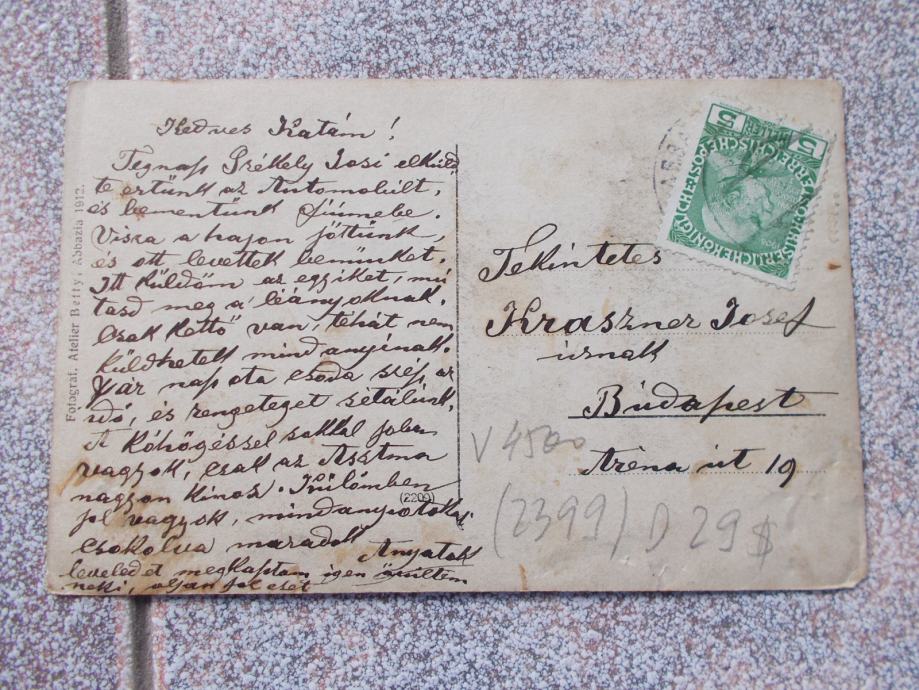 Kedves Katám!
Tegnap Székely Josi elküld
te értünk az Automobilt,
és bementünk Fiúmebe.
Visza a hajon jöttünk,
és ott levettek beműnket.
Itt küldöm az egyiket, mu
tasd meg a leányoknak.
Csak kettő van, tehát nem
küldhetek mindanyinak.
Pár nap ota csoda szép az
idő, és rengeteget sétálunk.
A köhögéssel sokkal joban
vagyok, csak az Asztma
nagyon kinoz. Külömben
jol vagyok, mindanyiotokat
csokolva maradok
Anyatok
leveledet megkaptam igen örültem
neki, oljan jol esét
Fotograf. Atelier Betty, Abbazia 1912.
(2209)
5 5
HELLER
KAISERLICHEKÖNIGLICHE
ÖSTERREICHISCHE POST
1908
ABBA
Tekintetes
Kraszner Josef
úrnak
Búdapest
Aréna út 19
V 4500
(2399) D 29 $